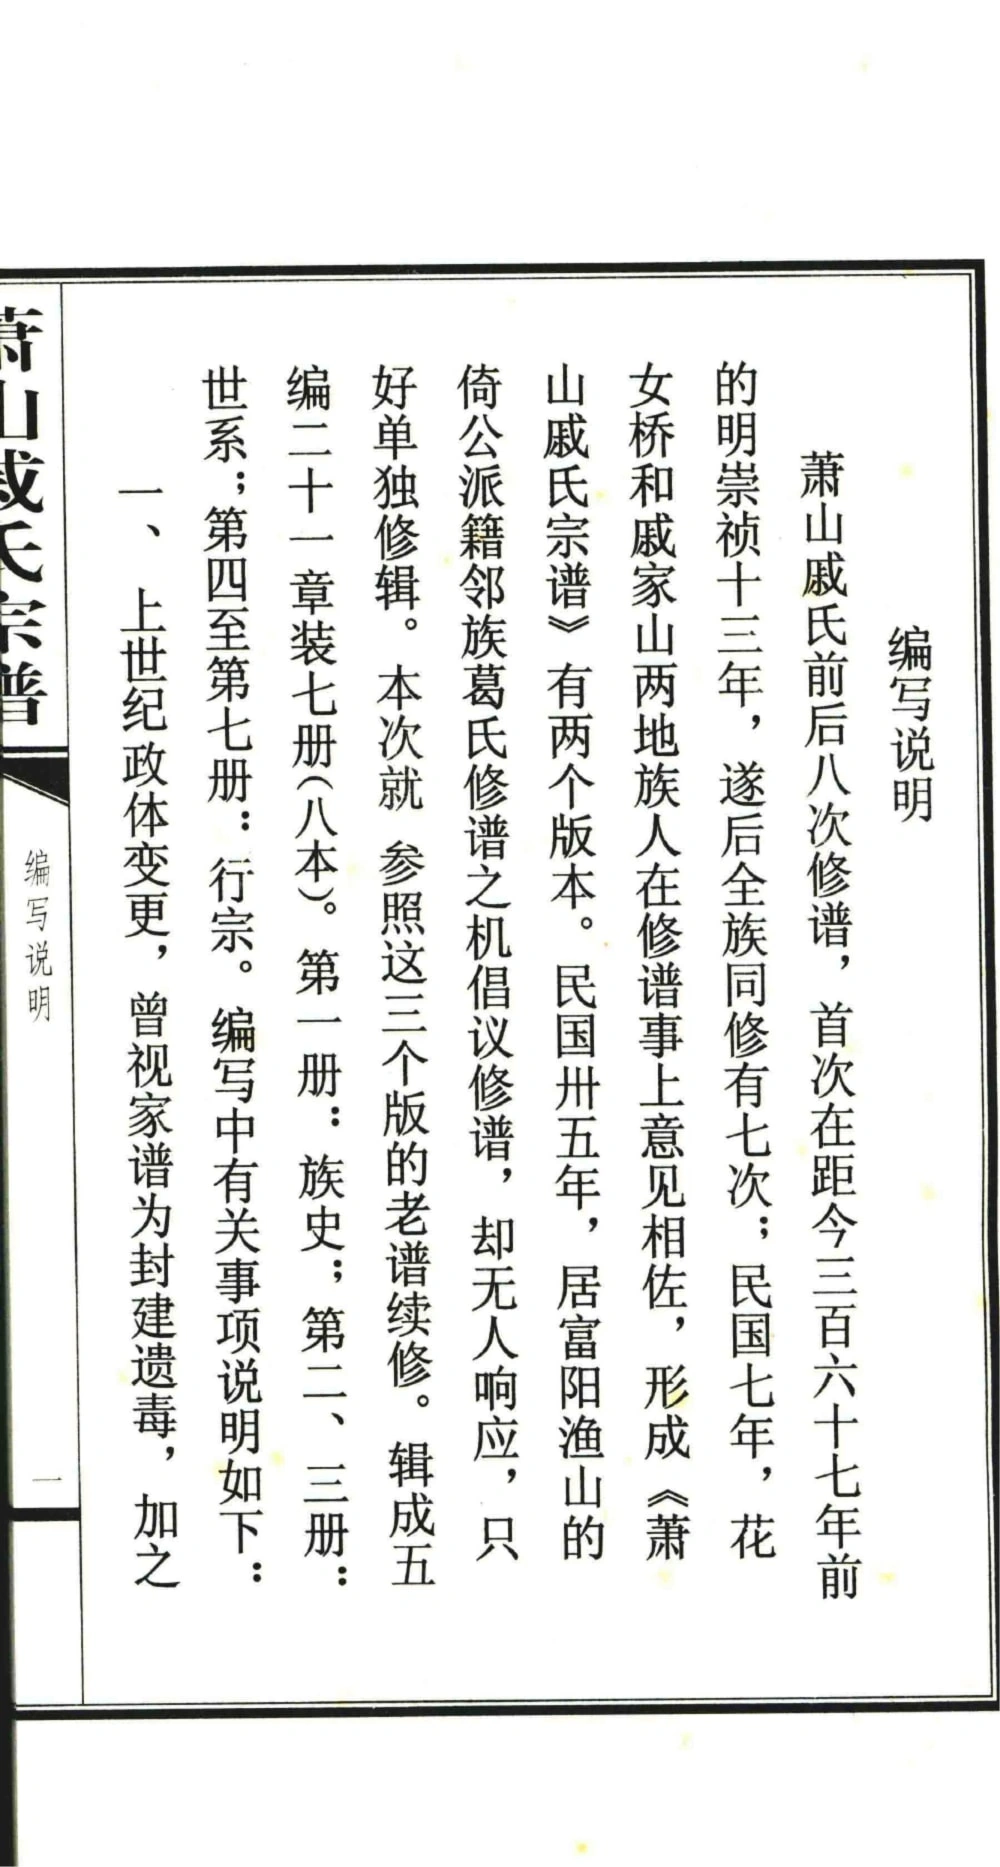 编写说明
萧山戚氏前后八次修谱，首次在距今三百六十七年前
的明崇祯十三年，遂后全族同修有七次；民国七年，花
女桥和戚家山两地族人在修谱事上意见相佐，形成《萧
山戚氏宗谱》有两个版本。民国卅五年，居富阳渔山的
倚公派籍邻族葛氏修谱之机倡议修谱，却无人响应，只
好单独修辑。本次就 参照这三个版的老谱续修。辑成五
编二十一章装七册（八本）。第一册：族史；第二、三册：
世系；第四至第七册：行宗。编写中有关事项说明如下：
一、 上世纪政体变更，曾视家谱为封建遗毒，加之
萧山戚氏宗谱
编写说明
一